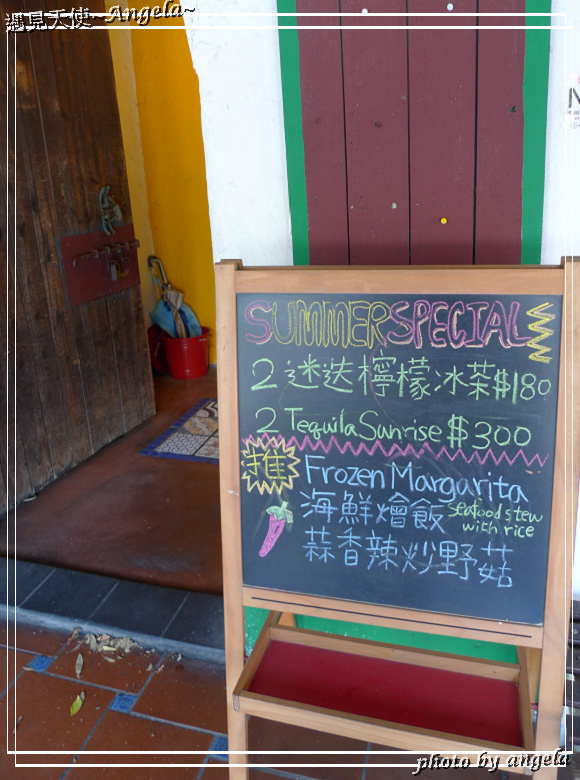 遇見天使~Angela~
SUMMER SPECIAL
2 迷迭檸檬冰茶$180
2 Tequila Sunrise $300
推 Frozen Margarita
海鮮燴飯 seafood stew
with rice
蒜香辣炒野菇
photo by angela